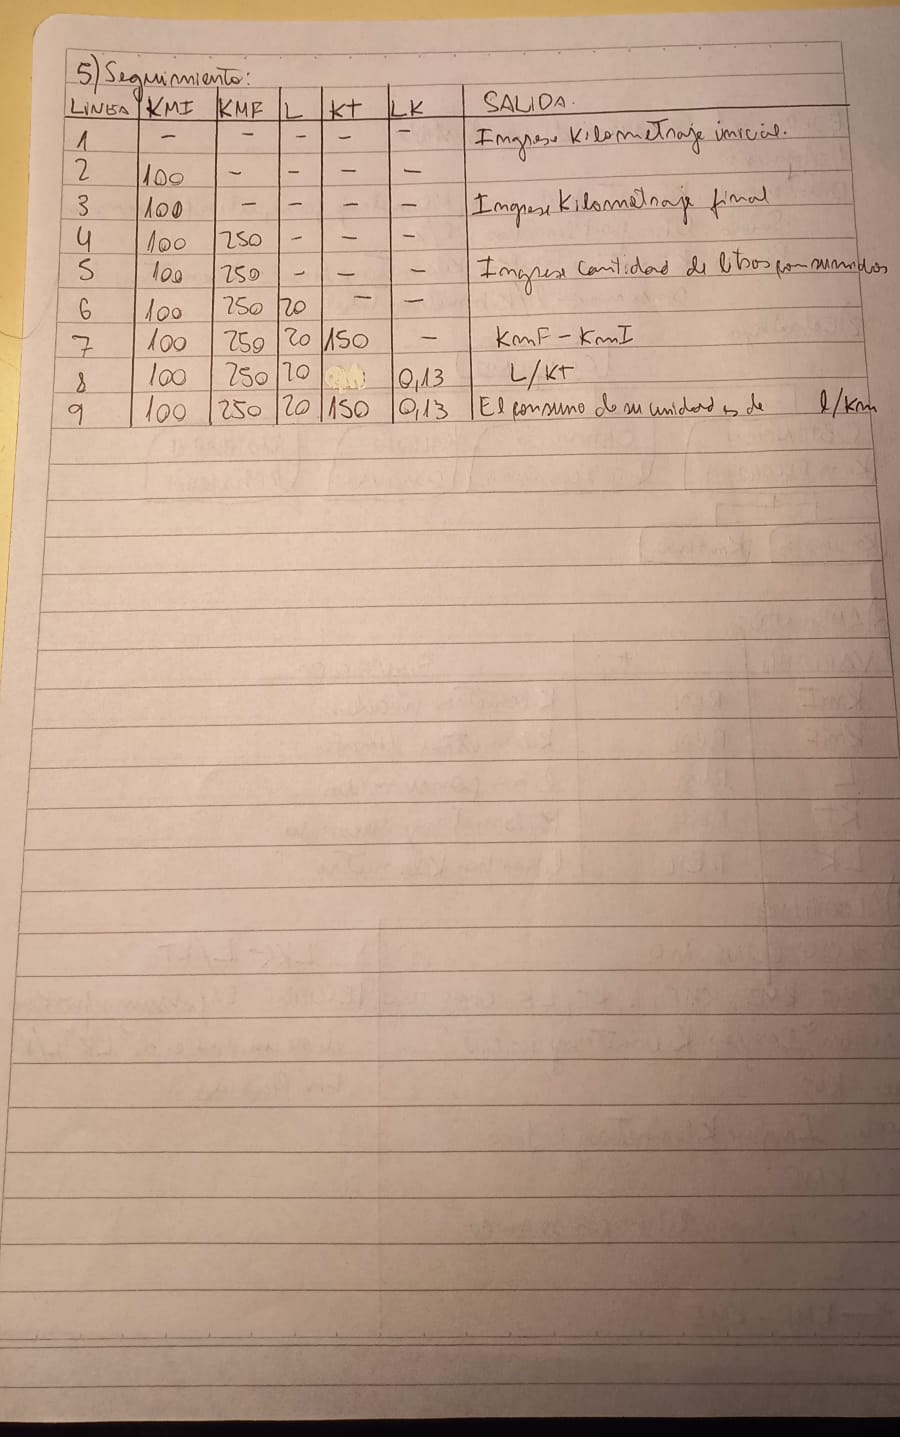 5) Seguimiento:
LINEA KMI KMF L KT LK SALIDA.
1 - - - - - Ingrese Kilometraje inicial.
2 100 - - - -
3 100 - - - - Ingrese Kilometraje final
4 100 250 - - -
5 100 250 - - - Ingrese cantidad de litros consumidos
6 100 250 20 - -
7 100 250 20 150 - KmF - KmI
8 100 250 20 0,13 L/KT
9 100 250 20 150 0,13 El consumo de su unidad es de l/km